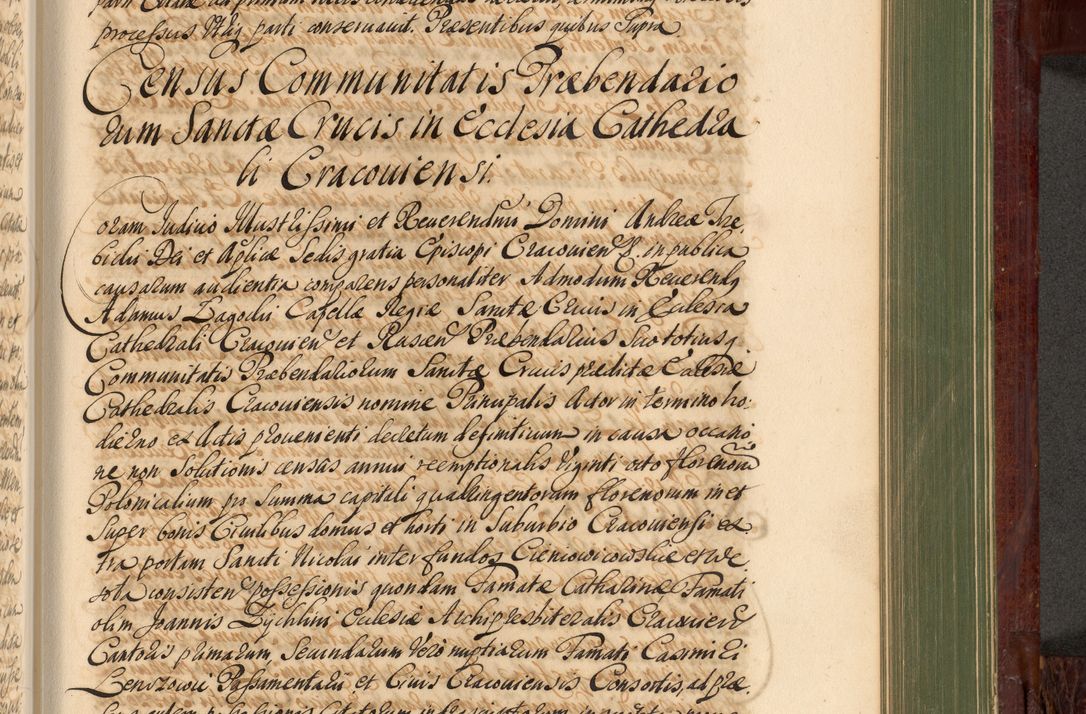 processus Nttg parti conseruauit. Præsentibus quibus Supra
Census Communitatis Præbendario
rum Sanctæ Crucis in Ecclesia Cathedra
li Cracouiensi.
Coram Iudicio Illustrissimi et Reuerendmi Domini Andreæ Tre
bicki Dei et Aplicæ Sedis gratia Episcopi Cracouien in publica
causarum audientia comparens personaliter Admodum Reuerendg
Adamus Zagocki Capellæ Regiæ Sanctæ Crucis in Ecclesia
Cathedrali Cracouien et Rascen Præbendarius Suo totiusq
Communitatis Præbendariorum Sanctæ Crucis prædictæ Ecclesiæ
Cathedralis Cracouiensis nomine Principalis Actor in termino ho
dierno ex Actis prouenienti decretum definitiuum in causa occasio
ne non Solutionis census annui reemptionalis Viginti octo florenoru
Polonicalium pro Summa capitali quadringentorum florenorum in et
Super bonis Ciuilibus domus et horti in Suburbio Cracouiensi ex
tra portam Sancti Nicolai inter fundos Cieniowicowskie et We
sota consisten possessionis quondam Famatæ Catharinæ Famati
olim Joannis Zychlini Ecclesiæ Archipresbiteralis Cracouien
Cantoris primarum, Secundarum Vero nuptiarum Famati Casimiri
Lenczowic Passamentarii et Ciuis Cracouiensis Consortis, ad præ